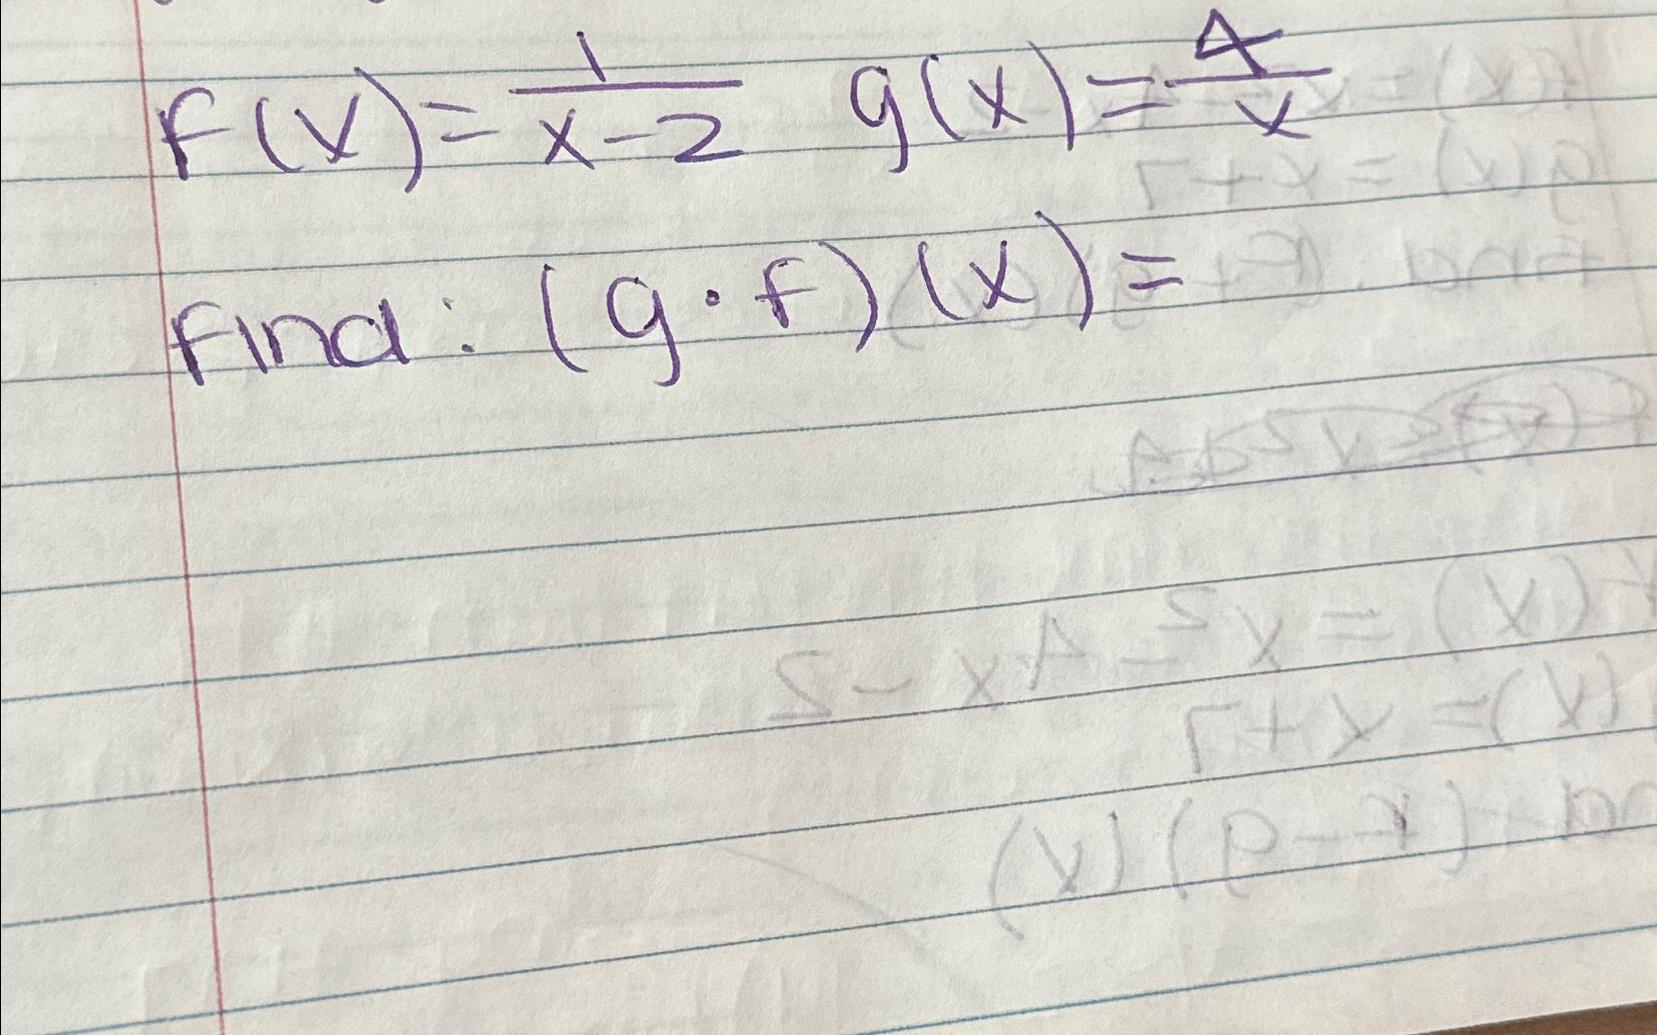 f(x) = 1/(x-2) g(x) = 4/x
Find: (g · f)(x) =